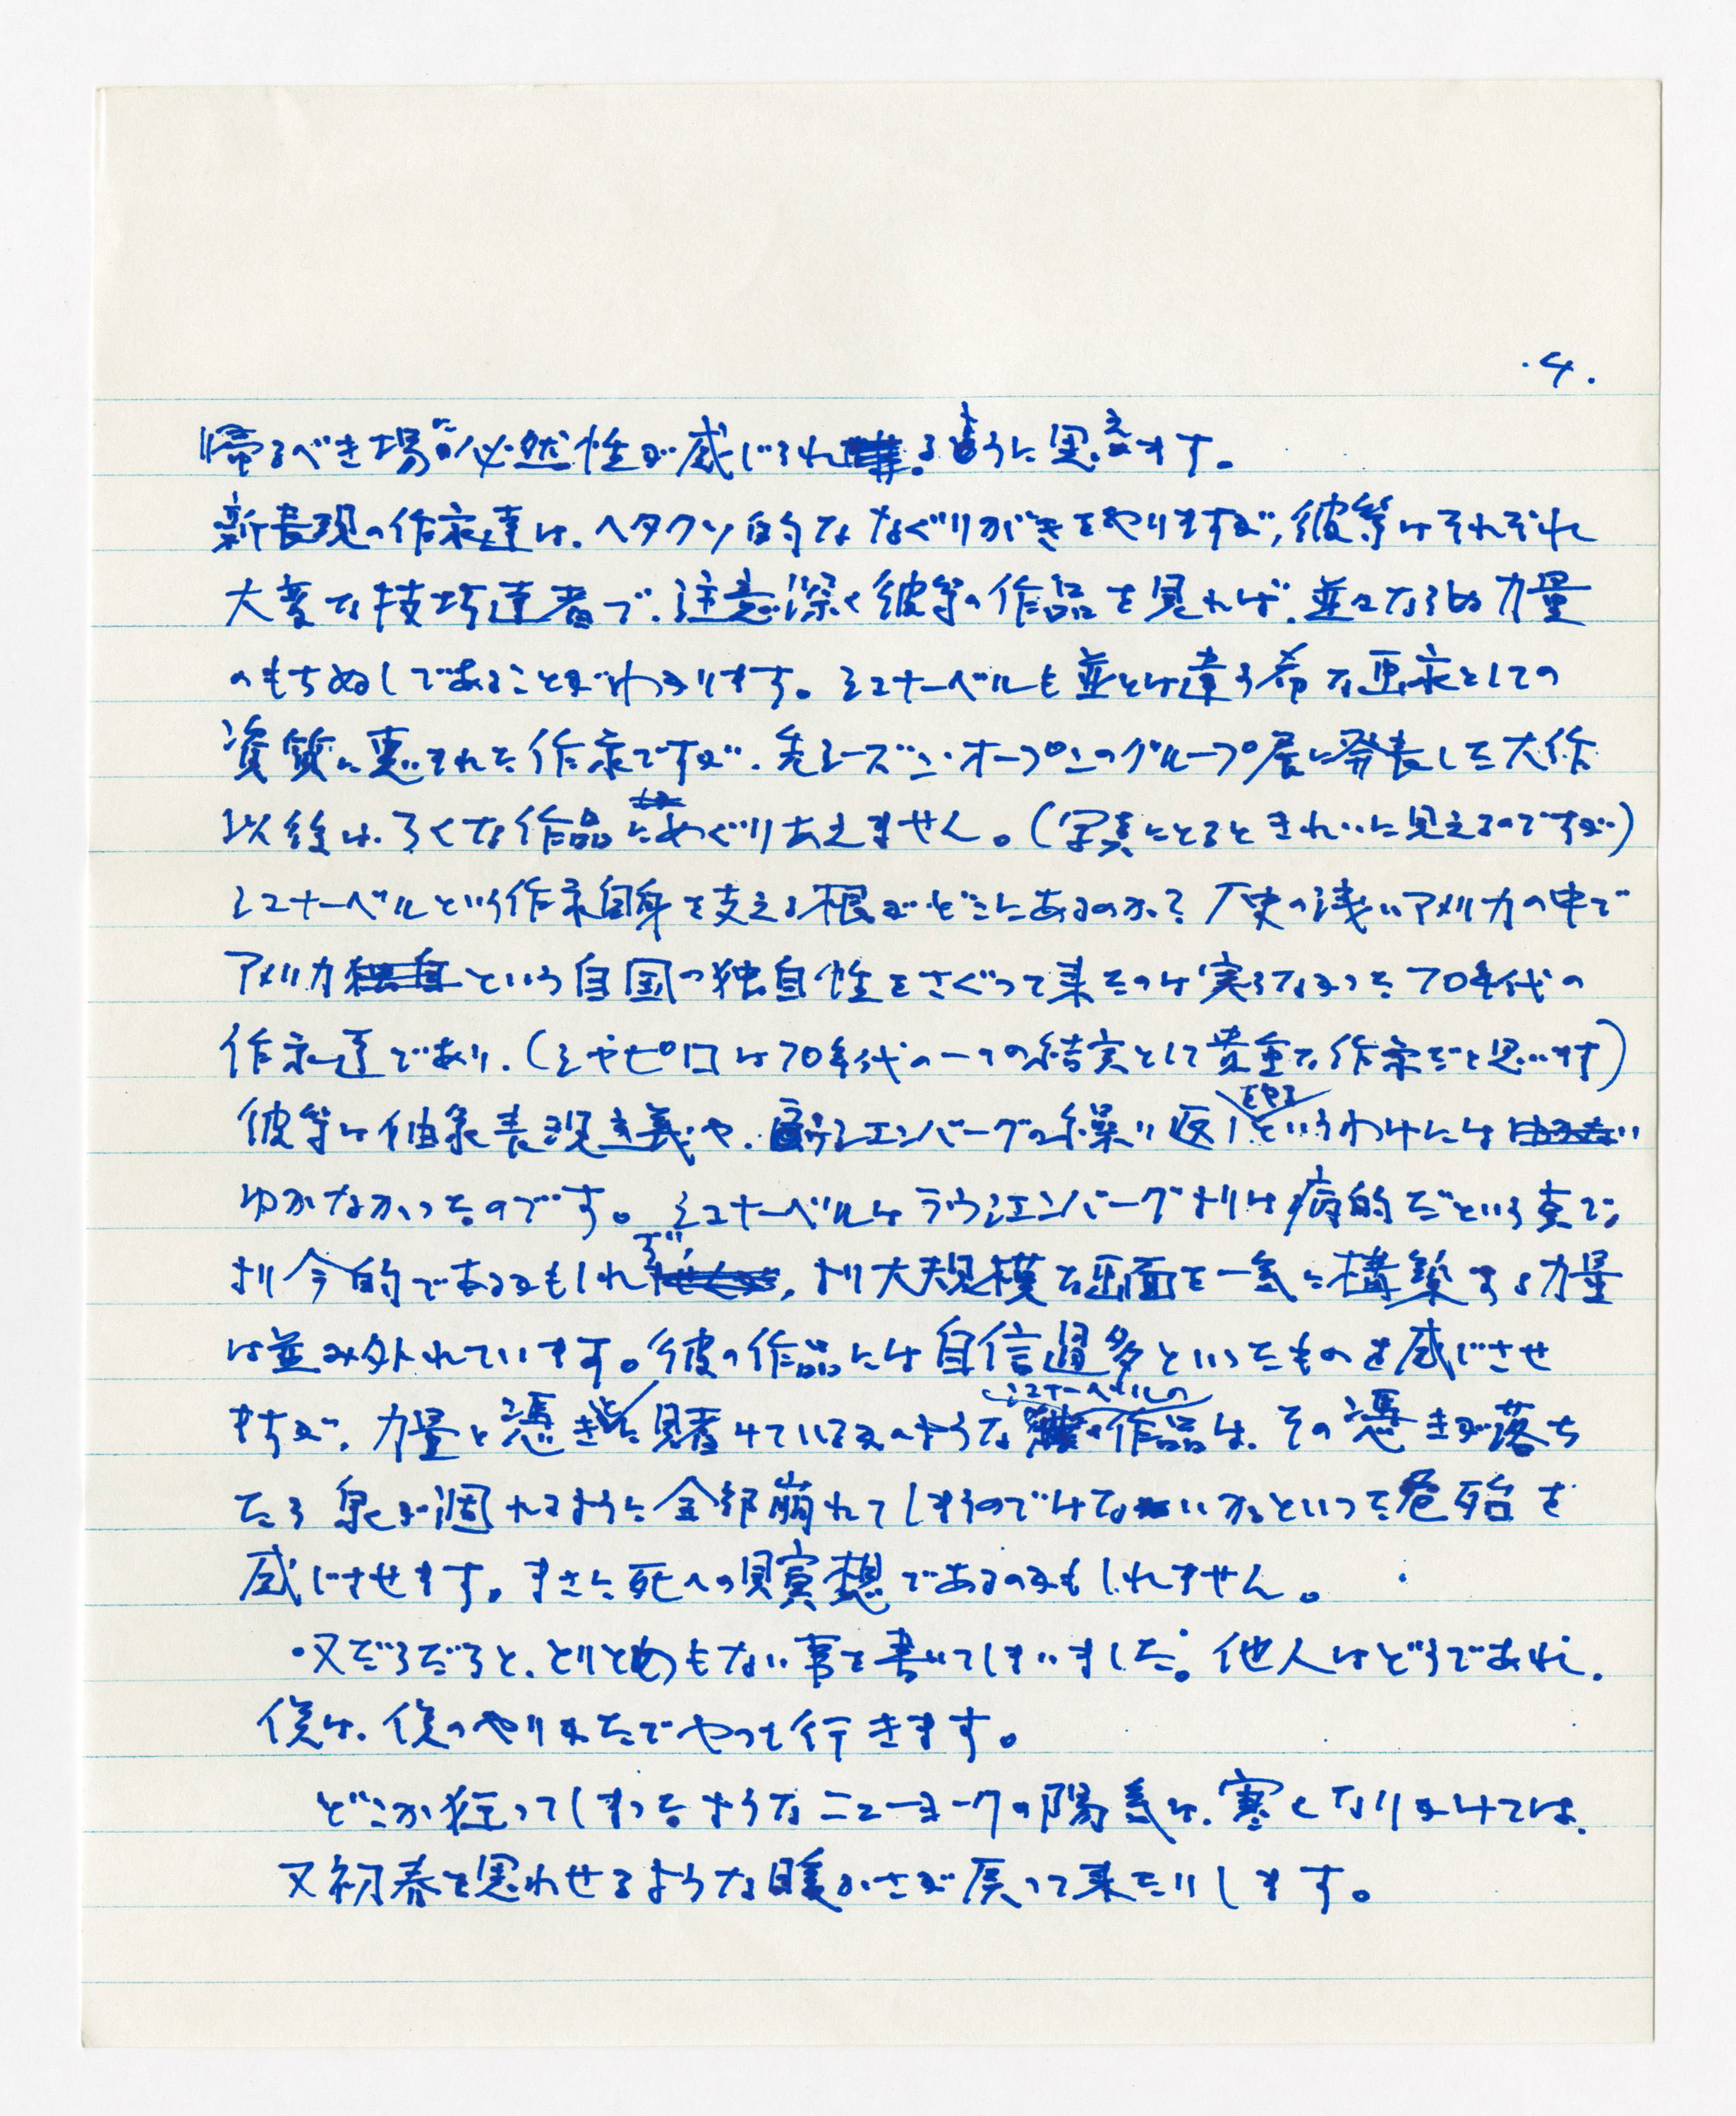 .4.
帰るべき場が必然性が感じられるように思えます。
新表現の作家達は、ヘタクソ的ななぐりがきをやりますが、彼等はそれぞれ
大変な技巧達者で、注意深く彼等の作品を見れば、並々ならぬ力量
のもちぬしであることがわかります。シュナーベルも並とは違う希な画家としての
資質に恵まれた作家ですが、先シーズン・オープンのグループ展に発表した大作
以後は、ろくな作品にめぐりあえません。（写真にとるときれいに見えるのですが）
シュナーベルという作家自身を支える根がどこにあるのか？歴史の浅いアメリカの中で
アメリカ独自という自国の独自性をさぐって来たのは実らなかった70年代の
作家達であり、（シャピロは70年代の一つの結実として貴重な作家だと思います）
彼等は抽象表現主義や、ラウシェンバーグの繰り返しをやるというわけには
ゆかなかったのです。シュナーベルはラウシェンバーグよりは病的だという点で、
より今的であるかもしれず、より大規模な画面を一気に構築する力量
は並み外れています。彼の作品には自信過多といったものを感じさせ
ますが、力量と憑きとに見者けているかのようなシュナーベルの作品は、その憑きが落ち
たら泉が涸れるように全部崩れてしまうのではないかといった危殆を
感じさせます。まさに死への瞑想であるのかもしれません。
又だらだらと、とりとめもない事を書いてしまいました。他人はどうであれ、
僕は、僕のやりかたでやって行きます。
どこか狂ってしまったようなニューヨークの陽気は、寒くなりかけては、
又初春を思わせるような暖かさが戻って来たりします。